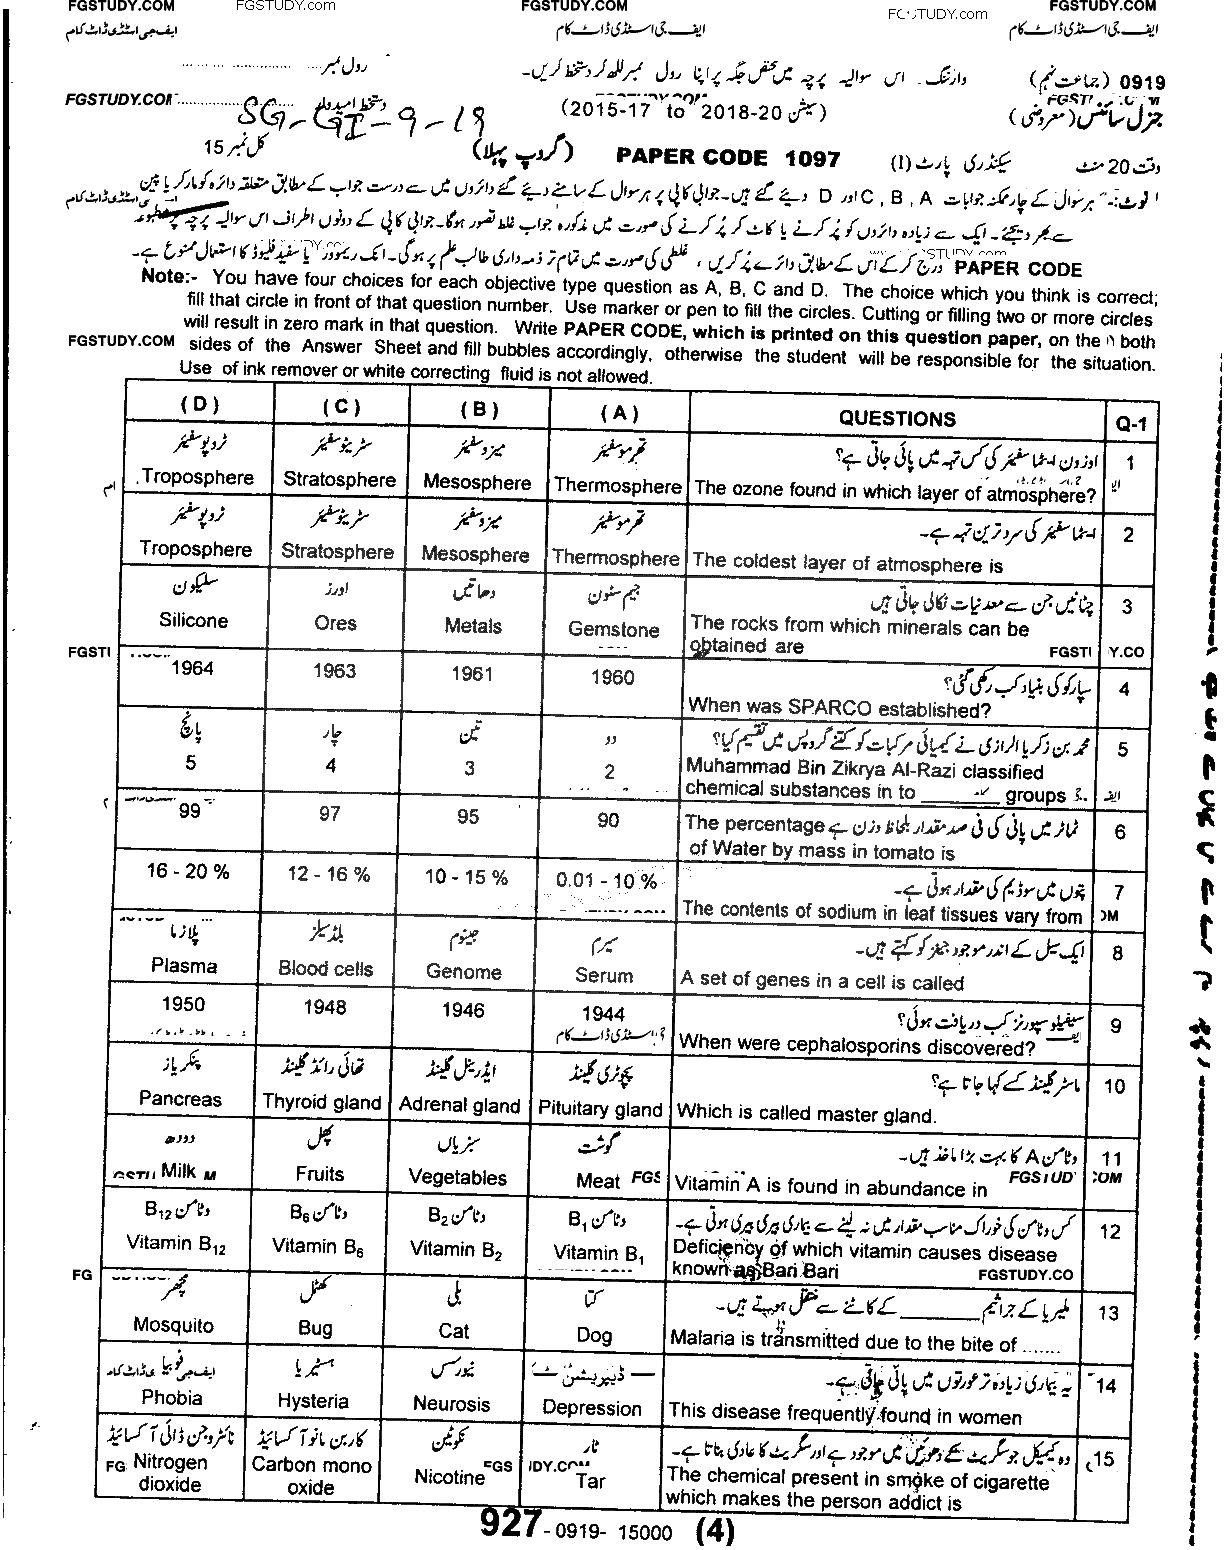 FGSTUDY.COM FGSTUDY.com FGSTUDY.COM FGSTUDY.com FGSTUDY.COM
ایف جی اسٹڈی ڈاٹ کام ایف جی اسٹڈی ڈاٹ کام ایف جی اسٹڈی ڈاٹ کام
0919 (جماعت نہم) وارننگ۔ اس سوالیہ پرچہ میں مختص جگہ پر اپنا رول نمبر لکھ کر دستخط کریں۔ رول نمبر
جنرل سائنس (معروضی) سیشن (2015-17 to 2018-20) دستخط امیدوار FGSTUDY.COM
SG-GI-9-19
وقت 20 منٹ سیکنڈری پارٹ (I) PAPER CODE 1097 (گروپ پہلا) کل نمبر 15
نوٹ:- ہر سوال کے چار ممکنہ جوابات A , B , C اور D دیئے گئے ہیں۔ جوابی کاپی پر ہر سوال کے سامنے دیئے گئے دائروں میں سے درست جواب کے مطابق متعلقہ دائرہ کو مارکر یا پین
سے بھر دیجئے۔ ایک سے زیادہ دائروں کو پُر کرنے یا کاٹ کر پُر کرنے کی صورت میں مذکورہ جواب غلط تصور ہوگا۔ جوابی کاپی کے دونوں اطراف اس سوالیہ پرچہ پر مطبوعہ
PAPER CODE درج کر کے اس کے مطابق دائرے پُر کریں ، غلطی کی صورت میں تمام تر ذمہ داری طالب علم پر ہوگی۔ انک ریموور یا سفید فلیوڈ کا استعمال ممنوع ہے۔
Note:- You have four choices for each objective type question as A, B, C and D. The choice which you think is correct;
fill that circle in front of that question number. Use marker or pen to fill the circles. Cutting or filling two or more circles
will result in zero mark in that question. Write PAPER CODE, which is printed on this question paper, on the both
FGSTUDY.COM sides of the Answer Sheet and fill bubbles accordingly, otherwise the student will be responsible for the situation.
Use of ink remover or white correcting fluid is not allowed.
(D) (C) (B) (A) QUESTIONS Q-1
ٹروپوسفیئر سٹریٹوسفیئر میزوسفیئر تھرموسفیئر اوزون ایٹماسفیئر کی کس تہہ میں پائی جاتی ہے؟ 1
Troposphere Stratosphere Mesosphere Thermosphere The ozone found in which layer of atmosphere?
ٹروپوسفیئر سٹریٹوسفیئر میزوسفیئر تھرموسفیئر ایٹماسفیئر کی سرد ترین تہہ ہے۔ 2
Troposphere Stratosphere Mesosphere Thermosphere The coldest layer of atmosphere is
سلیکون اورز دھاتیں جیم سٹون چٹانیں جن سے معدنیات نکالی جاتی ہیں 3
Silicone Ores Metals Gemstone The rocks from which minerals can be
obtained are
1964 1963 1961 1960 سپارکو کی بنیاد کب رکھی گئی؟ 4
When was SPARCO established?
پانچ چار تین دو محمد بن زکریا الرازی نے کیمیائی مرکبات کو کتنے گروپس میں تقسیم کیا؟ 5
5 4 3 2 Muhammad Bin Zikrya Al-Razi classified
chemical substances in to ______ groups
99 97 95 90 ٹماٹر میں پانی کی فی صد مقدار بلحاظ وزن ہے The percentage 6
of Water by mass in tomato is
16 - 20 % 12 - 16 % 10 - 15 % 0.01 - 10 % پتوں میں سوڈیم کی مقدار ہوتی ہے۔ 7
The contents of sodium in leaf tissues vary from
پلازما بلڈ سیلز جینوم سیرم ایک سیل کے اندر موجود جینز کو کہتے ہیں۔ 8
Plasma Blood cells Genome Serum A set of genes in a cell is called
1950 1948 1946 1944 سیفیلوسپورنز کب دریافت ہوئی؟ 9
When were cephalosporins discovered?
پنکریاز تھائی رائڈ گلینڈ ایڈرینل گلینڈ پچوٹری گلینڈ ماسٹر گلینڈ کسے کہا جاتا ہے؟ 10
Pancreas Thyroid gland Adrenal gland Pituitary gland Which is called master gland.
دودھ پھل سبزیاں گوشت وٹامن A کا بہت بڑا ماخذ ہیں۔ 11
Milk Fruits Vegetables Meat Vitamin A is found in abundance in
وٹامن B12 وٹامن B6 وٹامن B2 وٹامن B1 کس وٹامن کی خوراک مناسب مقدار میں نہ لینے سے بیماری بیری بیری ہوتی ہے۔ 12
Vitamin B12 Vitamin B6 Vitamin B2 Vitamin B1 Deficiency of which vitamin causes disease
known as Bari Bari FGSTUDY.CO
مچھر کھٹمل بلی کتا ملیریا کے جراثیم ______ کے کاٹنے سے منتقل ہوتے ہیں۔ 13
Mosquito Bug Cat Dog Malaria is transmitted due to the bite of .......
فوبیا ہسٹیریا نیورسس ڈیپریشن یہ بیماری زیادہ تر عورتوں میں پائی جاتی ہے۔ 14
Phobia Hysteria Neurosis Depression This disease frequently found in women
نائٹروجن ڈائی آکسائیڈ کاربن مانو آکسائیڈ نکوٹین ٹار وہ کیمیکل جو سگریٹ کے دھوئیں میں موجود ہے اور سگریٹ کا عادی بناتا ہے۔ 15
Nitrogen dioxide Carbon mono oxide Nicotine Tar The chemical present in smoke of cigarette
which makes the person addict is
927-0919- 15000 (4)